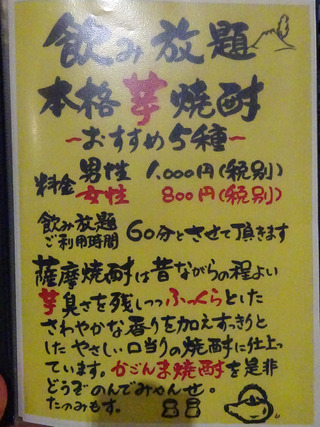 飲み放題
本格芋焼酎
~おすすめ5種~
料金 男性 1,000円(税別)
女性 800円(税別)
飲み放題
ご利用時間 60分とさせて頂きます
薩摩焼酎は昔ながらの程よい
芋臭さを残しつつふっくらとした
さわやかな香りを加えすっきりと
した やさしい口当りの焼酎に仕上っ
ています。かごんま焼酎を是非
どうぞのんでみやんせ。
たのみもす。